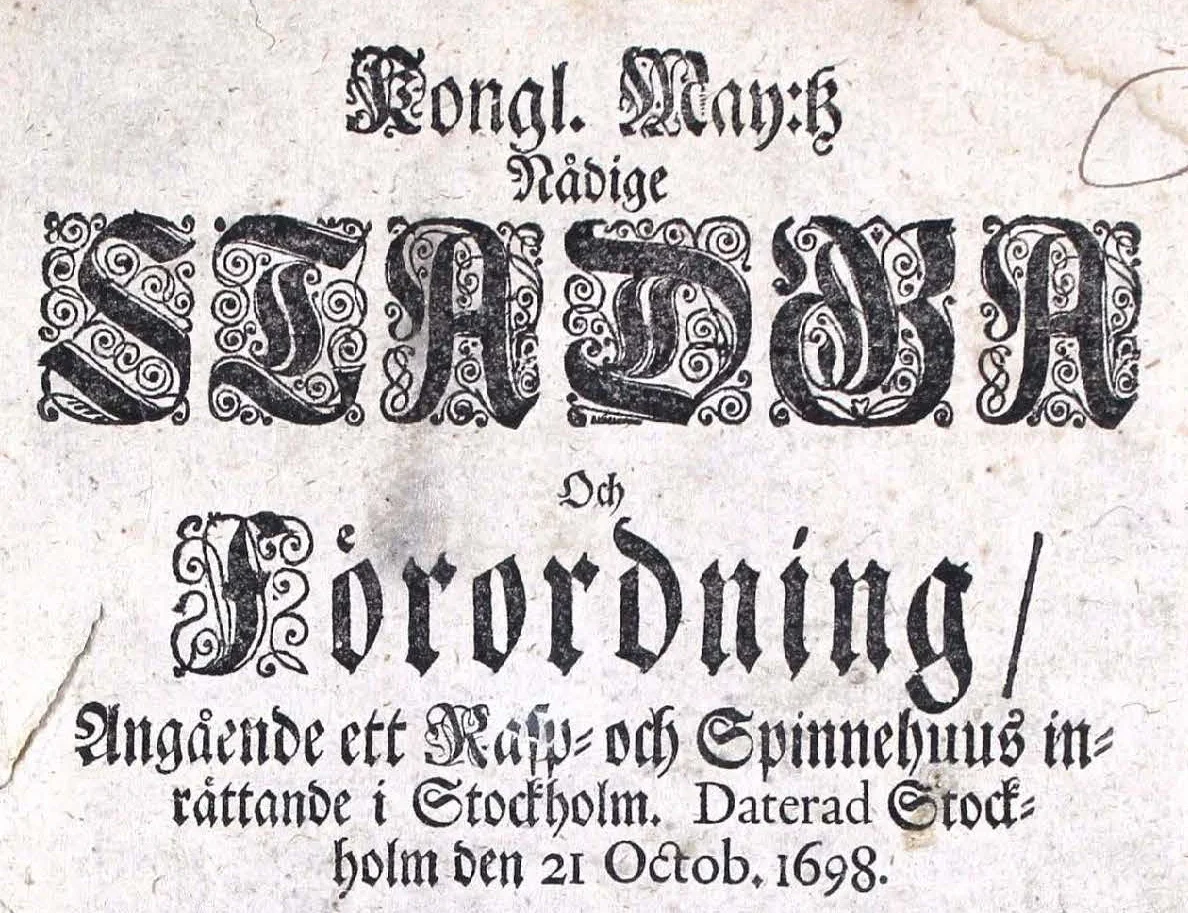 Kongl. May:tz
Nådige
STADGA
Och
Förordning/
Angående ett Rasp- och Spinnehuus in-
rättande i Stockholm. Daterad Stock-
holm den 21 Octob. 1698.